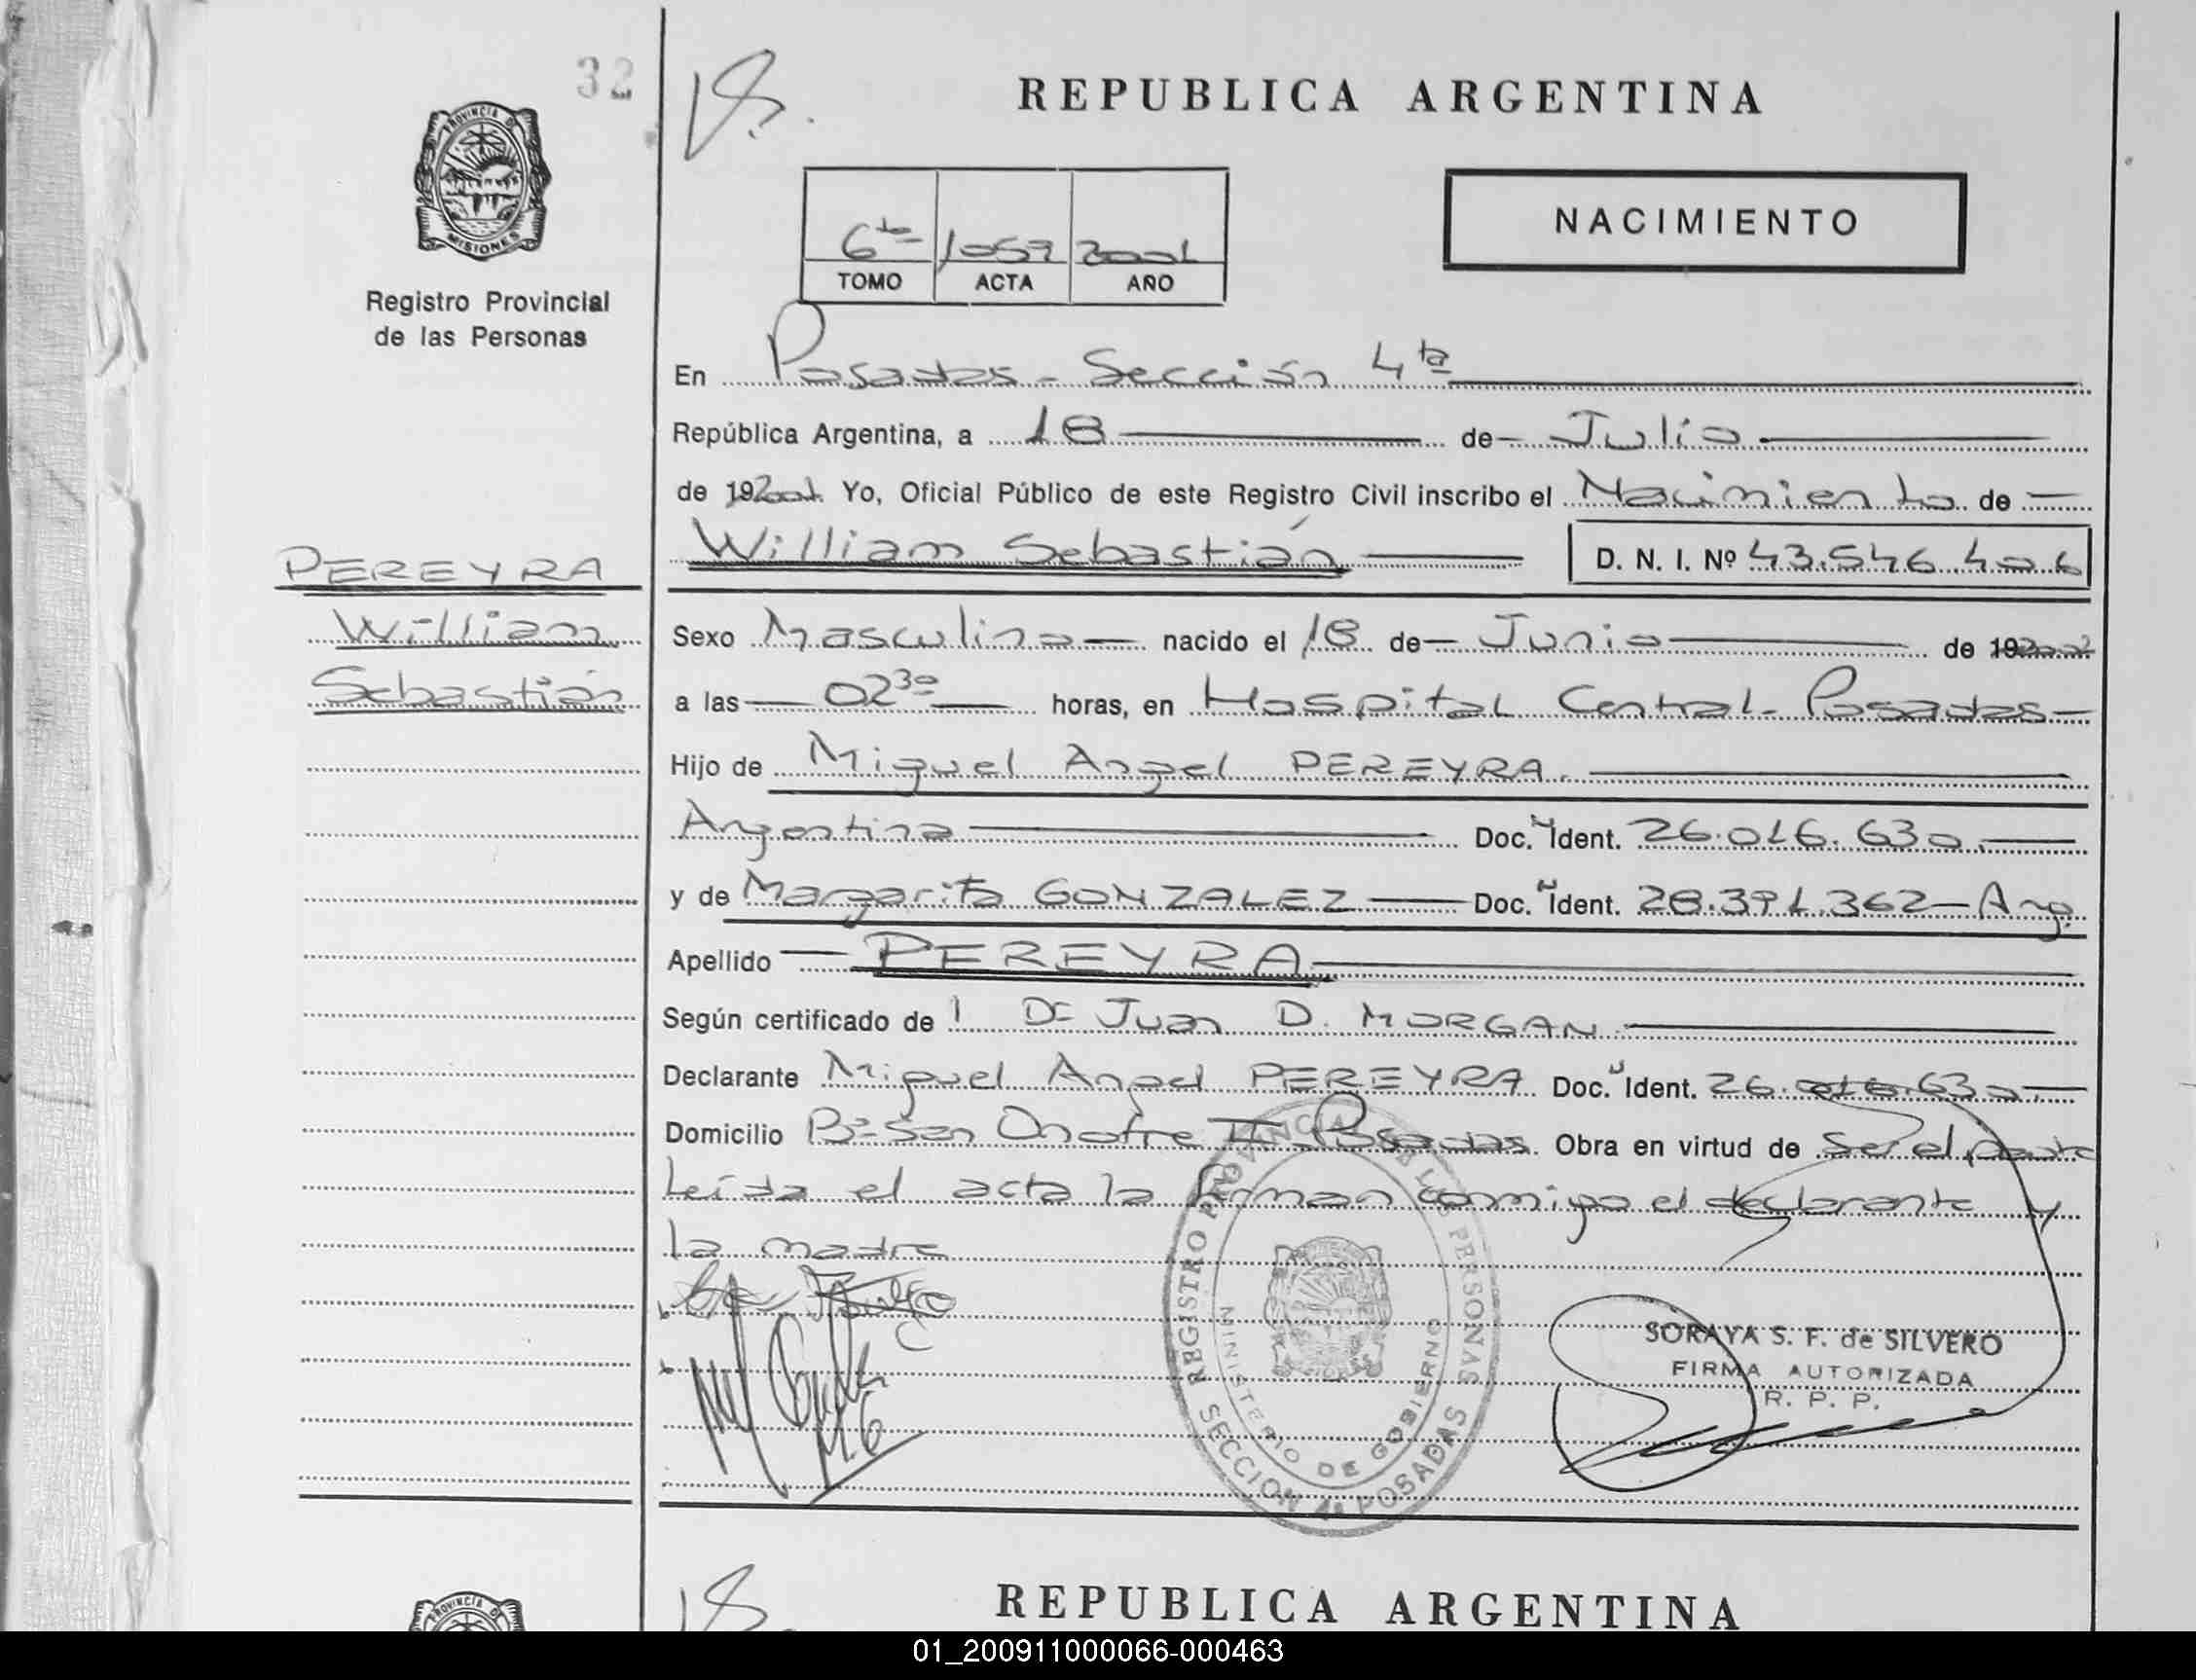 32
REPUBLICA ARGENTINA
PROVINCIA DE
MISIONES
Registro Provincial
de las Personas
NACIMIENTO
6to 1059 2001
TOMO ACTA AÑO
En Posadas - Sección 4ta
República Argentina, a 18 de Julio
de 192001. Yo, Oficial Público de este Registro Civil inscribo el Nacimiento de
PEREYRA
William
Sebastián
William Sebastián D. N. I. Nº 43.546.406
Sexo Masculino nacido el 18 de Junio de 192001
a las 02 30 horas, en Hospital Central - Posadas
Hijo de Miguel Angel PEREYRA.
Argentina Doc. Ident. 26.016.630.
y de Margarita GONZALEZ Doc. Ident. 28.391.362 - Arg.
Apellido PEREYRA
Según certificado de l Dr Juan D. MORGAN
Declarante Miguel Angel PEREYRA Doc. Ident. 26.016.630.
Domicilio Bº San Onofre II - Posadas. Obra en virtud de ser el padre
Leída el acta la firman conmigo el declarante y
la madre
REGISTRO PROVINCIAL DE LAS PERSONAS
MINISTERIO DE GOBIERNO
SECCION 4ª POSADAS
SORAYA S. F. de SILVERO
FIRMA AUTORIZADA
R. P. P.
PROVINCIA DE
REPUBLICA ARGENTINA
01_200911000066-000463